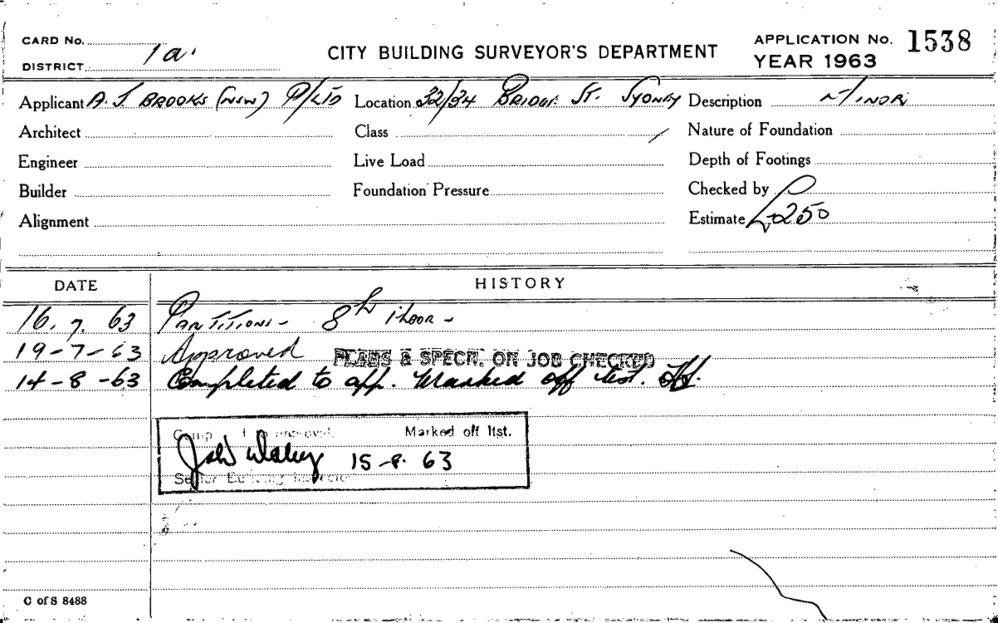 CARD No.
DISTRICT 1a'
CITY BUILDING SURVEYOR'S DEPARTMENT
APPLICATION No. 1538
YEAR 1963
Applicant A. J BROOKS (NSW) P/LTD Location 32/34 BRIDGE ST. SYDNEY Description MINOR
Architect Class Nature of Foundation
Engineer Live Load Depth of Footings
Builder Foundation Pressure Checked by
Alignment Estimate £250
DATE HISTORY
16.7.63 PARTITIONS - 8th Floor -
19-7-63 Approved PLANS & SPECN. ON JOB CHECKED
14-8-63 Completed to app. Marked off list.
Marked off list.
15-8-63
Senior Building Inspector
C of S 8488